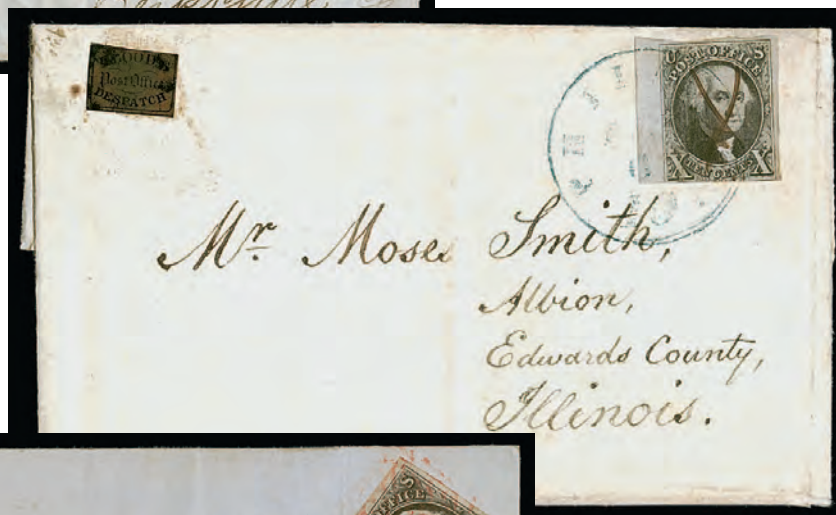 BLOOD'S
Post Office
DESPATCH
U S
POST OFFICE
X TEN CENTS X
Mr. Moses Smith,
Albion,
Edwards County,
Illinois.
S
OFFICE